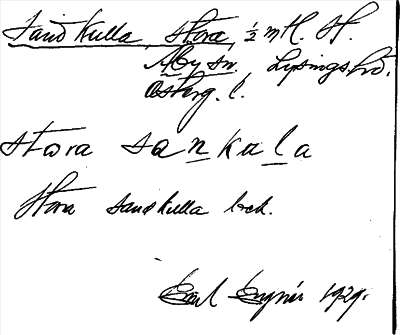 Sandkulla, Stora, ½ mtl. H.
Mby sn. Lysings hd.
Österg. l.
stora sankula
Stora sandkulla bek.
Carl Engnér 1929.